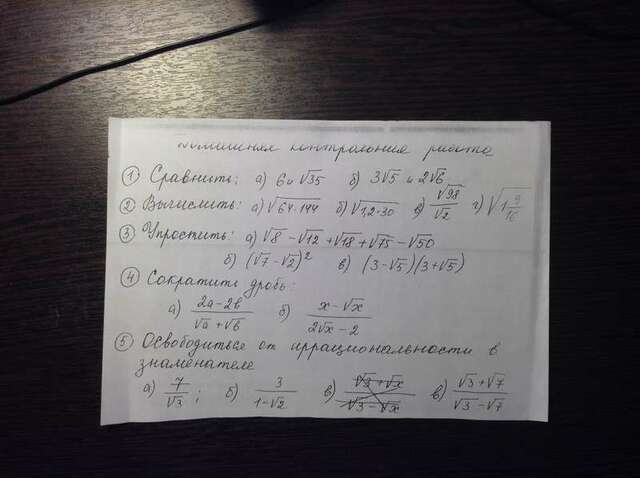 Домашняя контрольная работа
① Сравнить: а) 6 и √35 б) 3√5 и 2√6
② Вычислить: а) √64·144 б) √1,2·30 в) √98/√2 г) √1 9/16
③ Упростить: а) √8 − √12 + √18 + √75 − √50
б) (√7 − √2)² в) (3 − √5)(3 + √5)
④ Сократить дробь:
а) (2a − 2b)/(√a + √b) б) (x − √x)/(2√x − 2)
⑤ Освободиться от иррациональности в
знаменателе
а) 7/√3; б) 3/(1 − √2) в) (√3 + √x)/(√3 − √x) в) (√3 + √7)/(√3 − √7)